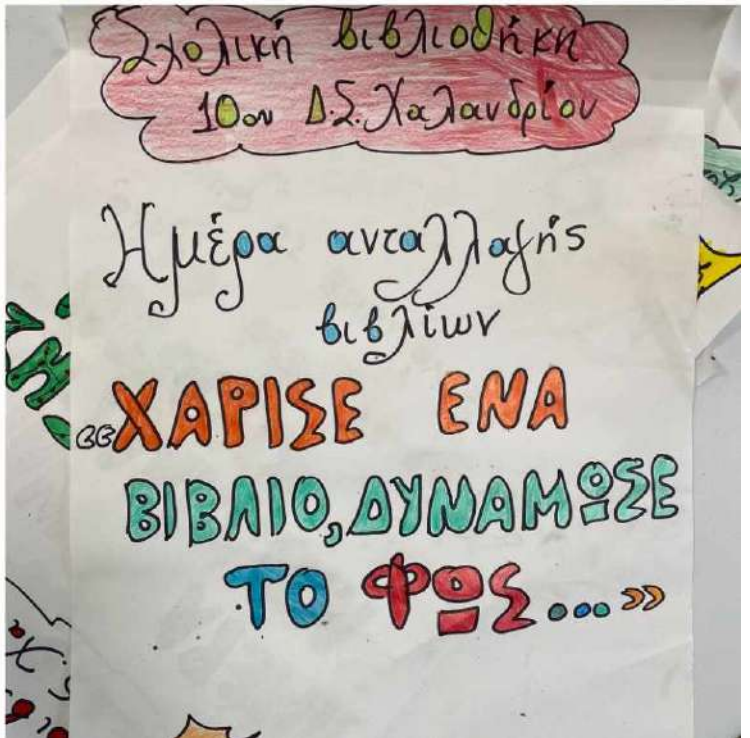 Σχολική βιβλιοθήκη
10ου Δ.Σ. Χαλανδρίου
Ημέρα ανταλλαγής
βιβλίων
«ΧΑΡΙΣΕ ΕΝΑ
ΒΙΒΛΙΟ, ΔΥΝΑΜΩΣΕ
ΤΟ ΦΩΣ...»